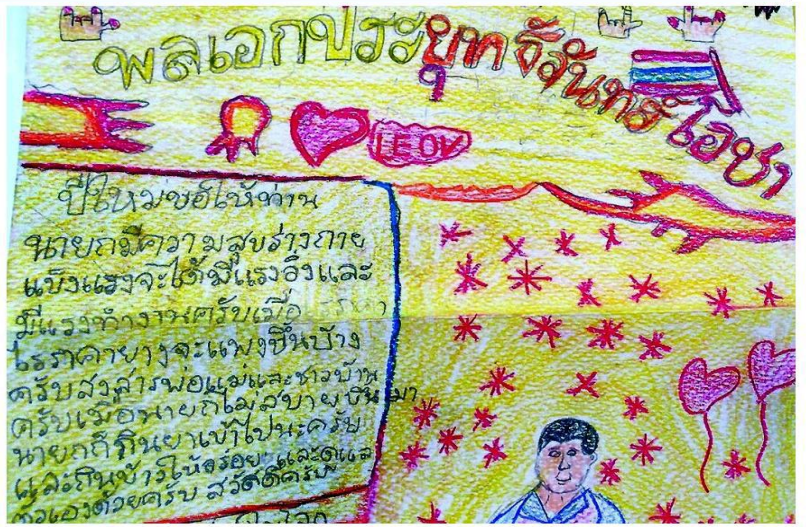 พลเอกประยุทจัรันทร์โอชา
ปีไหมขอไห้ท่าน
นายกมีความสุขร่างกาย
แข็งแรงจะได้มีแรงอึงและ
มีแรงทำงานครับเมื่อ
ไรราคายางจะแพงขึ้นบ้าง
ครับสงสารพ่อแม่และชาวบ้าน
ครับเมื่อนายกไม่สบายขึ้นมา
นายกก็กินยาเข้าไปนะครับ
และกินข้าวไห้อร่อยๆ และดูแล
ตัวเองด้วยครับ สวัสดีครับ